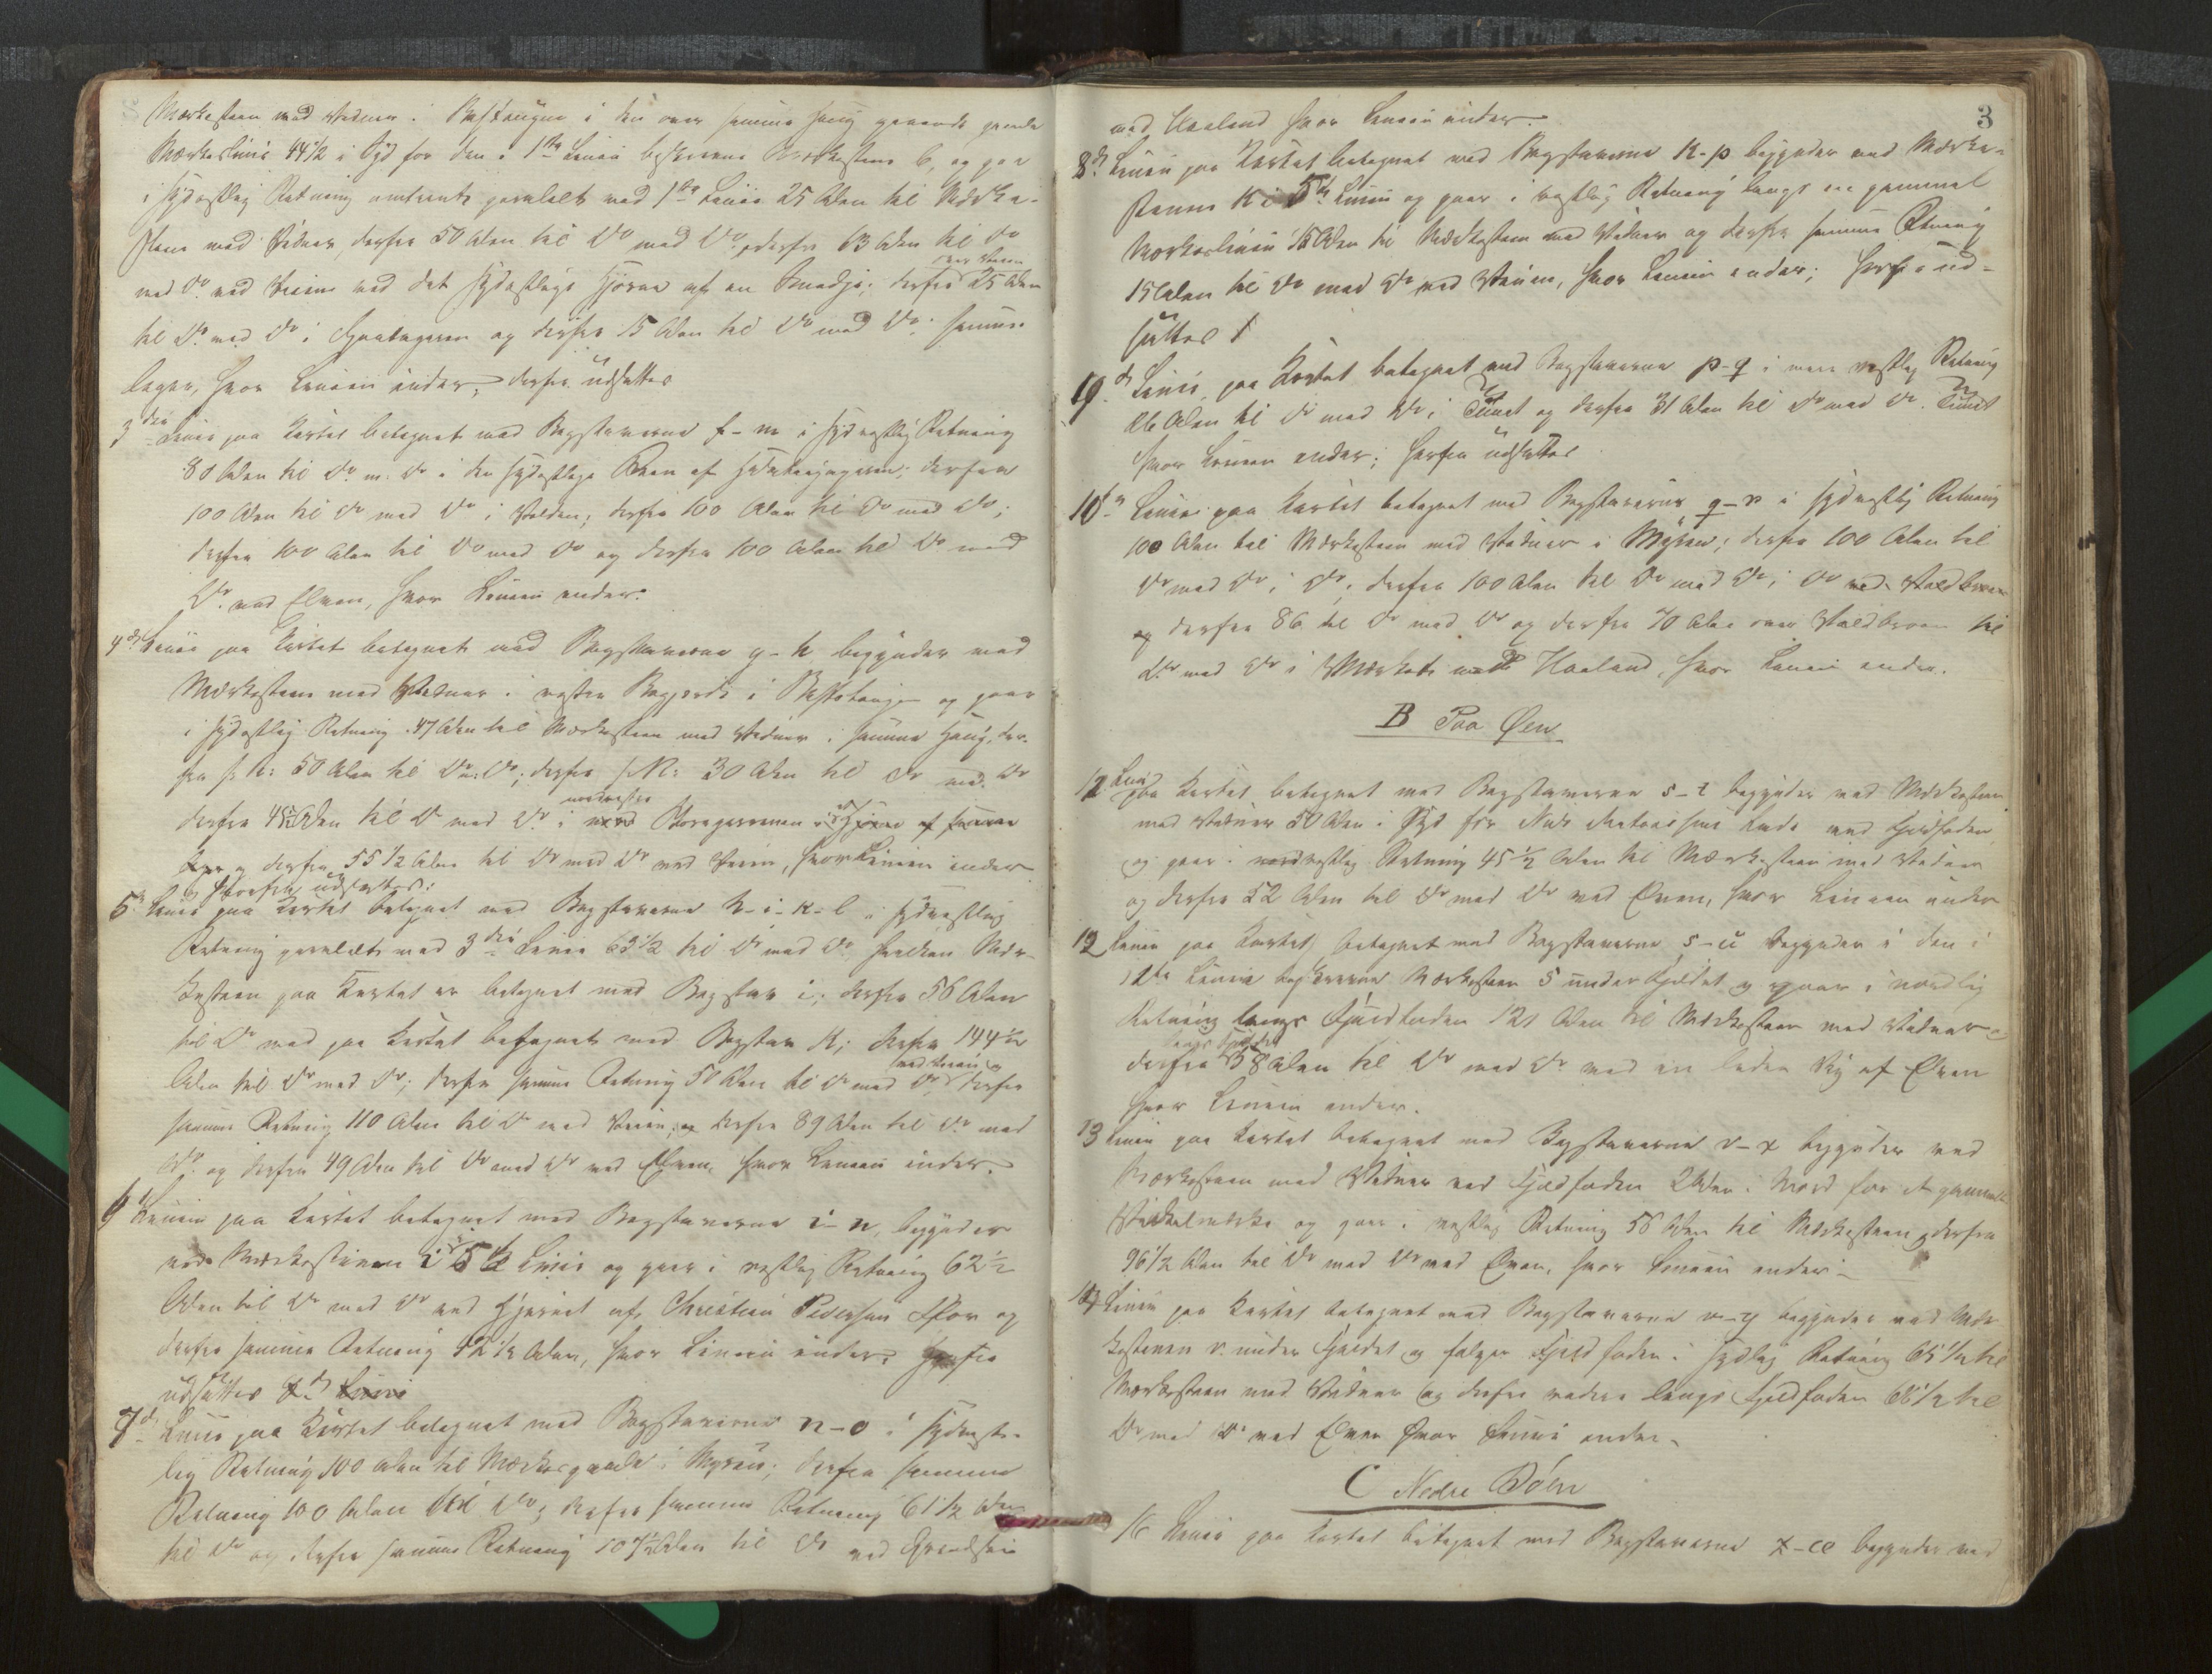 Mærkesteen med Vidner i Bakhougen i den over samme Houg gaaende gamle
Mærkeslinie 44 1/2 i Syd for den i 1ste Linie beskrevne Mærkesteen b, og gaar
i sydostlig Retning omtrent parallelt med 1ste Linie 25 Alen til Mærke-
steen med Vidner, derfra 50 Alen til Do med Do, derfra 63 Alen til Do
med Do ved Veien ved det sydostlige Hjørne af en Smedje; derfra over Veien 25 Alen
til Do med Do i og derfra 15 Alen til Do med Do i samme
hvor Linien ender; derfra udsattes
3die Linie paa Kartet betegnet med Bogstaverne f-m i sydvestlig Retning
80 Alen til Do m. Do i den sydostlige af derfra
100 Alen til Do med Do i Volden; derfra 100 Alen til Do med Do;
derfra 100 Alen til Do med Do og derfra 100 Alen til Do med
Do ved Elven, hvor Linien ender.
4de Linie paa Kartet betegnet med Bogstaverne g-h begynder med
Mærkesteen med Vidner i vestre i og gaar
i sydostlig Retning 47 Alen til Mærkesteen med Vidner i samme Houg, der-
fra s: R: 50 Alen til Do m: Do; derfra s: R: 30 Alen til Do med Do
derfra 45 1/2 Alen til Do med Do i nordvestre
og derfra 55 1/2 Alen til Do med Do ved Veien, hvor Linien ender
Herfra udsattes:
5te Linie paa Kartet betegnet med Bogstaverne h-i-k-l i sydvestlig
Retning parallelt med 3die Linie 63 1/2 til Do med Do, hvilken Mær-
kesteen paa Kartet er betegnet med Bogstav i; derfra 56 Alen
til Do med paa Kartet betegnet med Bogstav k; derfra 144 1/2
Alen til Do med Do; derfra samme Retning 50 Alen til Do med Do ved Veien og derfra
samme Retning 110 Alen til Do ved Veien, og derfra 89 Alen til Do med
Do og derfra 49 Alen til Do med Do ved Elven, hvor Linien ender.
6te Linie paa Kartet betegnet med Bogstaverne i-n, begynder
ved Mærkestenen i i 5te Linie og gaar i vestlig Retning 62 1/2
Alen til Do med Do ved Hjørnet af Christian Pedersens og
derfra samme Retning 42 1/2 Alen, hvor Linien ender. Herfra
udsattes
7de Linie paa Kartet betegnet med Bogstaverne n-o i sydvest-
lig Retning 100 Alen til i Myren; derfra samme
Retning 100 Alen til Do; derfra samme Retning 61 1/2 Alen
til Do og derfra samme Retning 107 1/2 Alen til Do ved
3
med Haaland hvor Linien ender.
8de Linie paa Kartet betegnet med Bogstaverne k-p begynder ved Mærke-
stenen k i 5te Linie og gaar i vestlig Retning langs en gammel
Mærkeslinie 15 Alen til Mærkesteen med Vidner og derfra samme Retning
15 Alen til Do med Do ved Veien, hvor Linien ender; herfra ud-
sattes
9de Linie, paa Kartet betegnet med Bogstaverne p-q i mere vestlig Retning
26 Alen til Do med Do i Tunet og derfra 31 Alen til Do med Do i Tunet
hvor Linien ender; herfra udsattes
10de Linie paa Kartet betegnet med Bogstaverne q-r i sydvestlig Retning
100 Alen til Mærkesteen med Vidner i Myren; derfra 100 Alen til
Do med Do i Do; derfra 100 Alen til Do med Do i Do
og derfra 86 til Do med Do og derfra 70 Alen over til
Do med Do i Mærket med Haaland, hvor Linien ender.
B Paa Øen
12 Linie paa Kartet betegnet med Bogstaverne s-t begynder ved Mærkesteen
med Vidner 50 Alen i Syd for ved Fjeldfoden
og gaar i vestlig Retning 45 1/2 Alen til Mærkesteen med Vidner
og derfra 52 Alen til Do med Do ved Elven, hvor Linien ender
12 Linie paa Kartet betegnet med Bogstaverne s-u begynder i den i
Linie beskrevne Mærkesteen s under Fjeldet og gaar i nordlig
Retning langs Fjeldfoden 121 Alen til Mærkesteen med Vidner og
derfra langs Fjeldet 58 Alen til Do med Do ved en liden Vig af Elven
hvor Linien ender.
13 Linie paa Kartet betegnet med Bogstaverne v-x begynder ved
Mærkesteen med Vidner ved Fjeldfoden 2 Alen i Nord for et gammelt
og gaar i vestlig Retning 56 Alen til Mærkesteen og derfra
96 1/2 Alen til Do med Do ved Elven, hvor Linien ender.
14 Linie paa Kartet betegnet med Bogstaverne v-y begynder ved Mær-
kestenen v under Fjeldet og følger Fjeldfoden i sydlig Retning 65 1/2 til
Mærkesteen med Vidner og derfra videre langs Fjeldfoden 66 1/2 til
Do med Do ved Elven hvor Linien ender.
C Nedre Bøen
16 Linie paa Kartet betegnet med Bogstaverne z-æ begynder ved